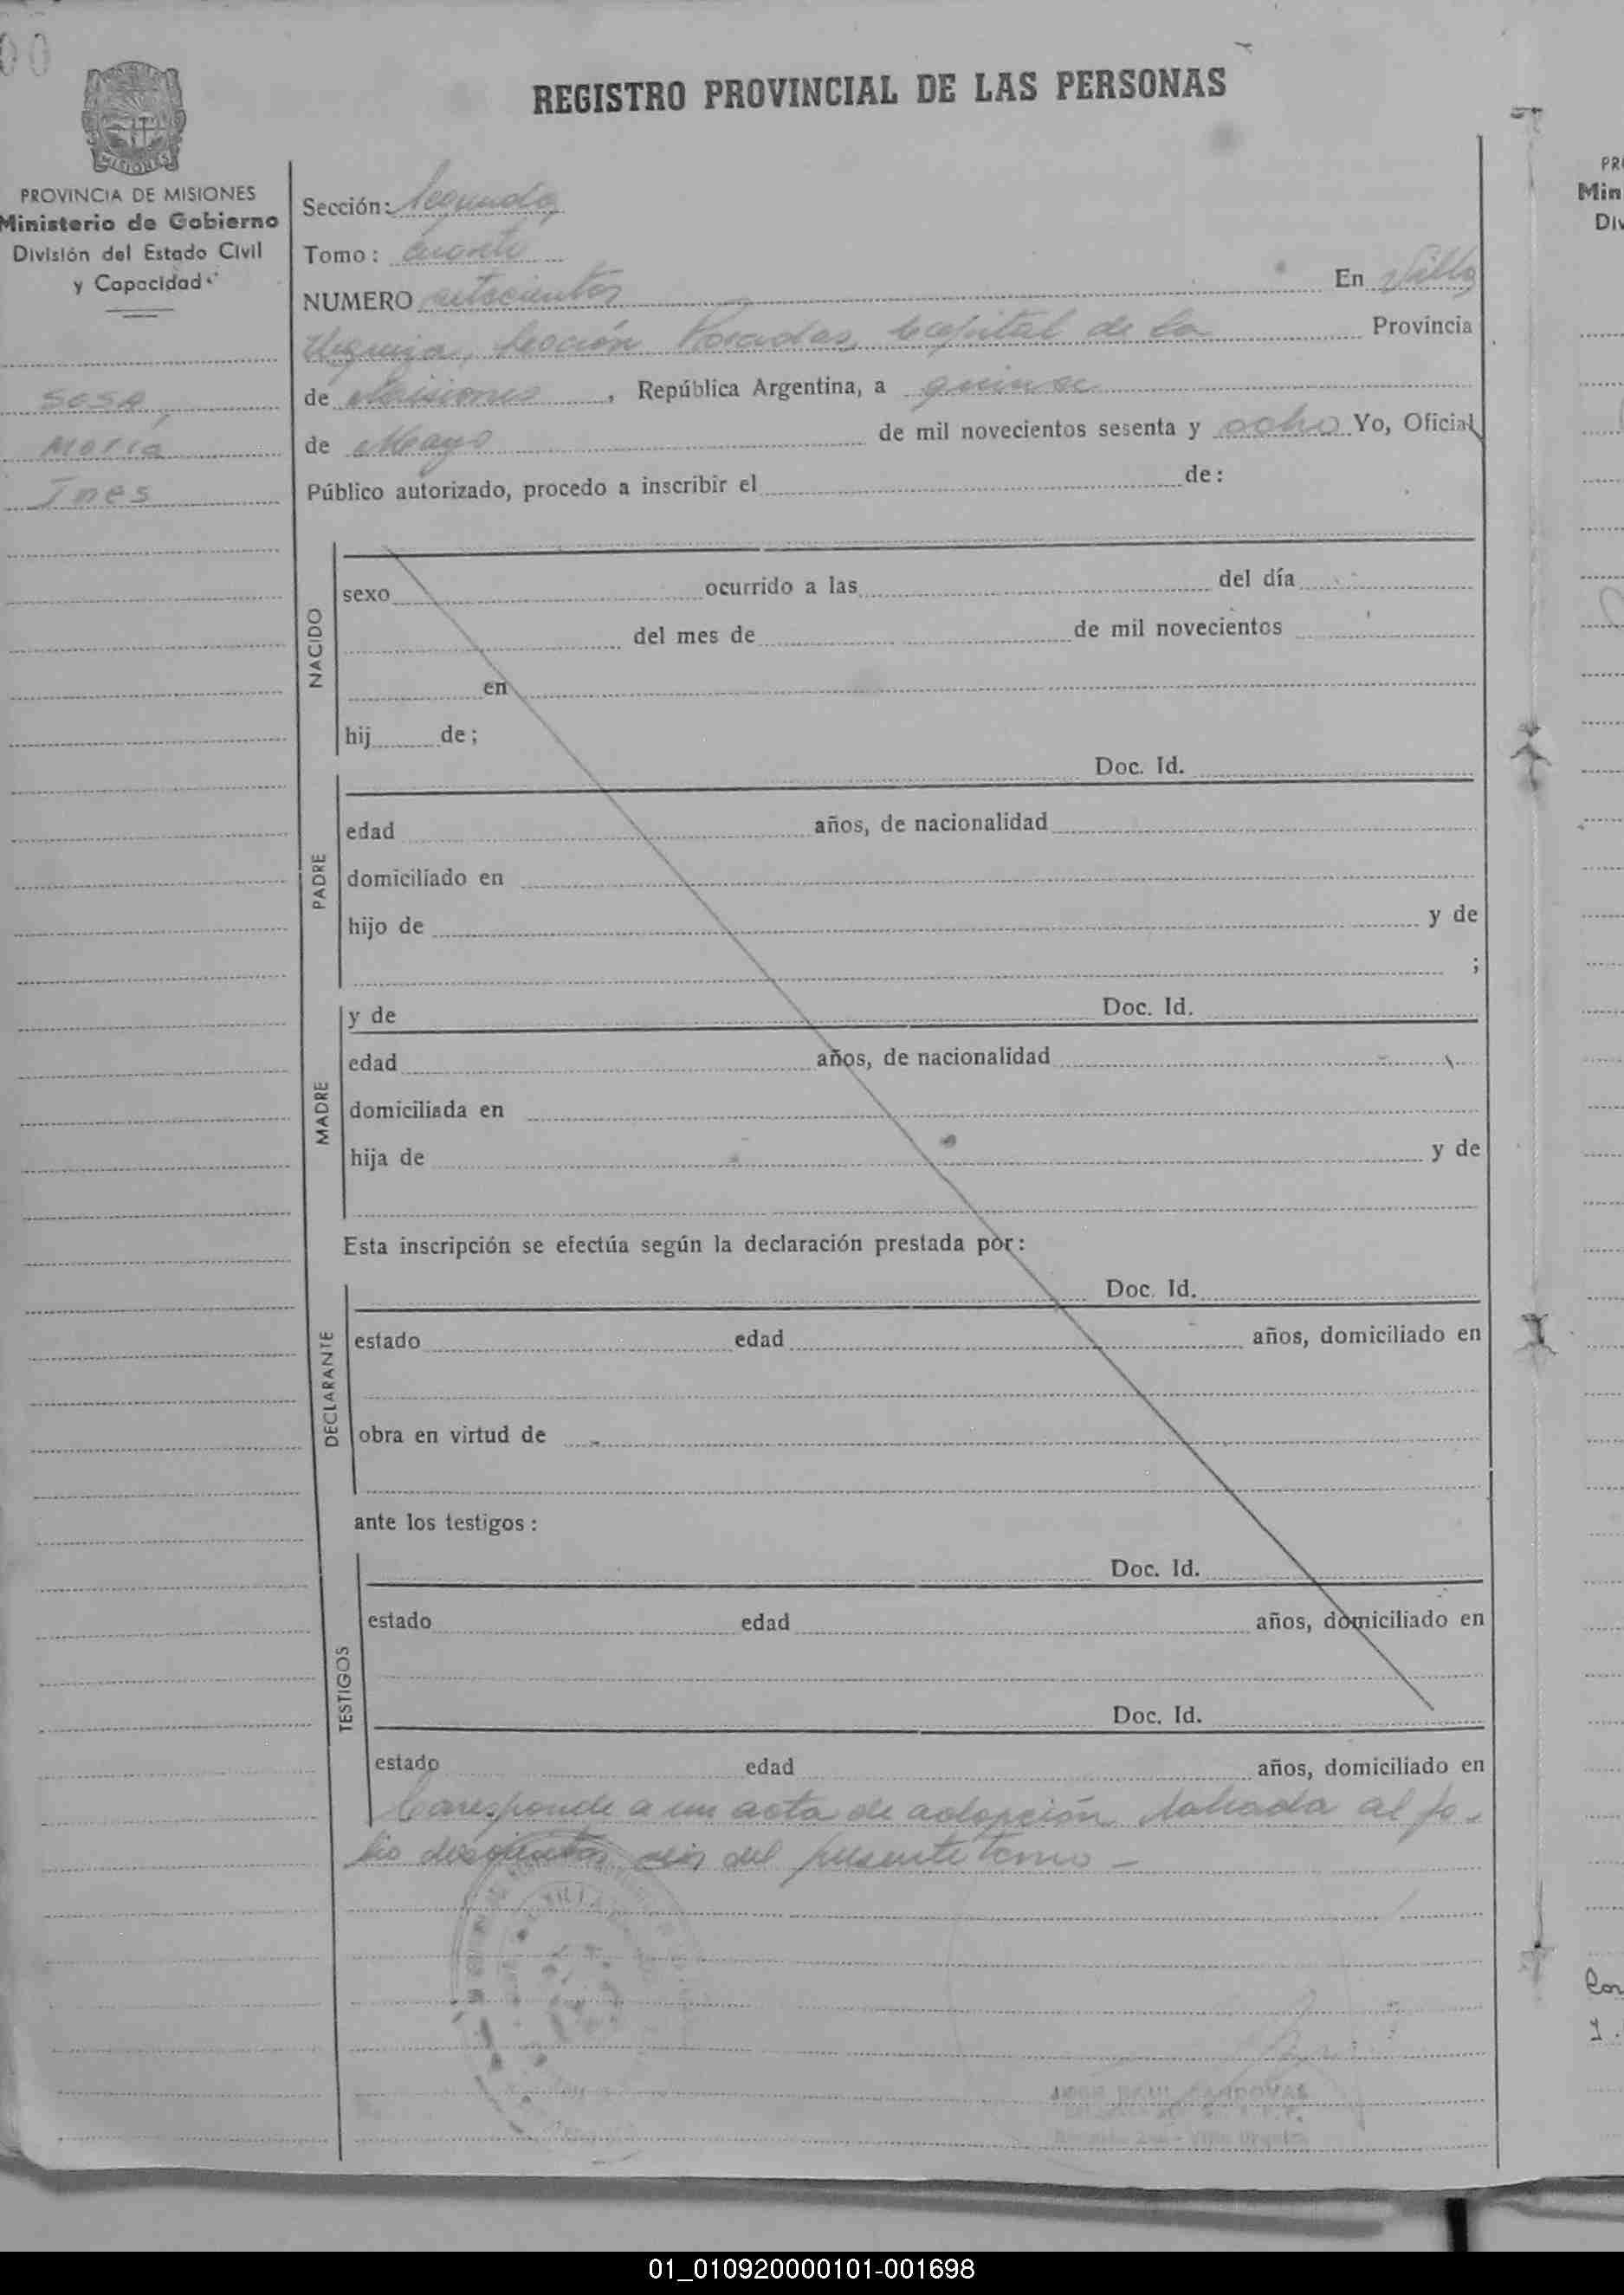 00
REGISTRO PROVINCIAL DE LAS PERSONAS
MISIONES
PROVINCIA DE MISIONES
Ministerio de Gobierno
División del Estado Civil
y Capacidad
SOSA,
María
Ines
Sección: Segunda
Tomo: Cuarto
NUMERO setecientos En Villa
Urquiza, Sección Posadas, Capital de la Provincia
de Misiones, República Argentina, a quince
de Mayo de mil novecientos sesenta y ocho Yo, Oficial
Público autorizado, procedo a inscribir el de:
NACIDO
sexo ocurrido a las del día
del mes de de mil novecientos
en
hij de;
PADRE
Doc. Id.
edad años, de nacionalidad
domiciliado en
hijo de y de
;
MADRE
y de Doc. Id.
edad años, de nacionalidad
domiciliada en
hija de y de
Esta inscripción se efectúa según la declaración prestada por:
DECLARANTE
Doc. Id.
estado edad años, domiciliado en
obra en virtud de
ante los testigos:
TESTIGOS
Doc. Id.
estado edad años, domiciliado en
Doc. Id.
estado edad años, domiciliado en
Corresponde a un acta de adopción labrada al fo-
lio del presente tomo -
SANDOVAL
PR
Min
Div
01_010920000101-001698